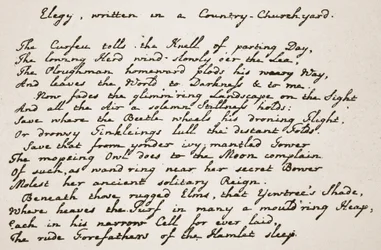 Elegy, written in a Country-Churchyard.
The Curfeu tolls the Knell of parting Day,
The lowing Herd wind slowly o'er the Lea,
The Ploughman homeward plods his weary Way,
And leaves the World to Darkness & to me.
Now fades the glimm'ring Landscape on the Sight
And all the Air a solemn Stillness holds:
Save where the Beetle wheels his droning Flight,
Or drowsy Tinkleings lull the distant Folds.
Save that from yonder ivy-mantled Tower
The mopeing Owl does to the Moon complain
Of such, as wand'ring near her secret Bower
Molest her ancient solitary Reign.
Beneath those rugged Elms, that Yewtree's Shade,
Where heaves the Turf in many a mould'ring Heap,
Each in his narrow Cell for ever laid,
The rude Forefathers of the Hamlet sleep.